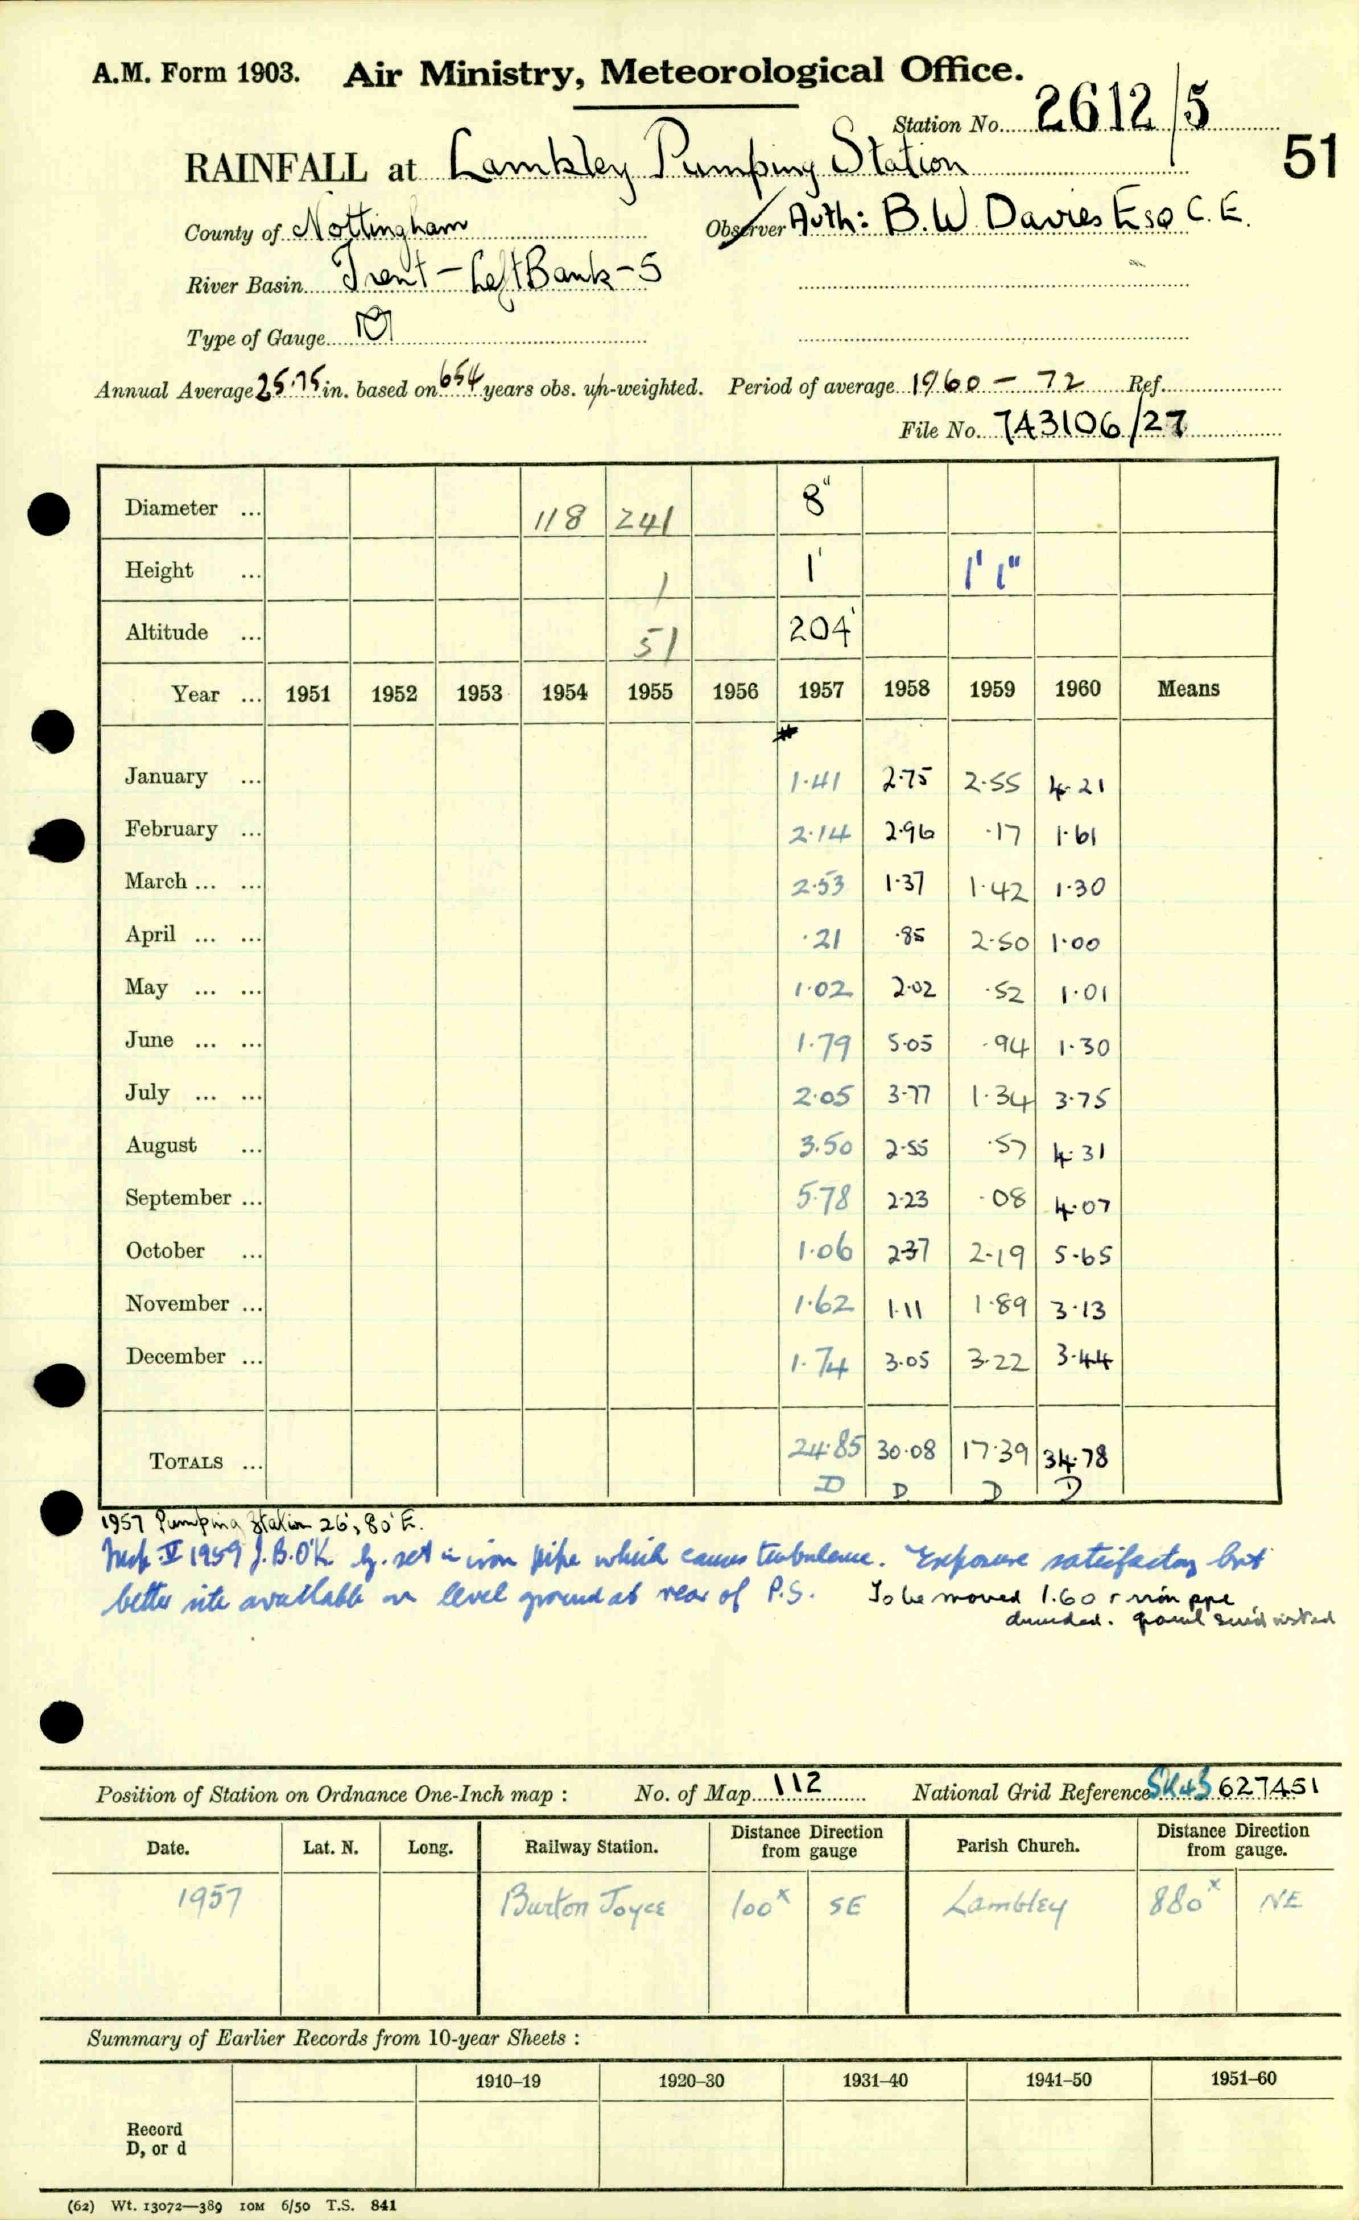 A.M. Form 1903. Air Ministry, Meteorological Office.
Station No. 2612/5
51
RAINFALL at Lambley Pumping Station
County of Nottingham Observer Auth: B.W. Davies Esq C.E.
River Basin Trent – Left Bank – 5
Type of Gauge
Annual Average 25.75 in. based on 654 years obs. un-weighted. Period of average 1960 – 72 Ref.
File No. 743106/27
Diameter ... 118 241 8"
Height ... 1 1' 1' 1"
Altitude ... 51 204'
Year ... 1951 1952 1953 1954 1955 1956 1957 1958 1959 1960 Means
January ... 1.41 2.75 2.55 4.21
February ... 2.14 2.96 .17 1.61
March ... ... 2.53 1.37 1.42 1.30
April ... ... .21 .85 2.50 1.00
May ... ... 1.02 2.02 .52 1.01
June ... ... 1.79 5.05 .94 1.30
July ... ... 2.05 3.77 1.34 3.75
August ... 3.50 2.55 .57 4.31
September ... 5.78 2.23 .08 4.07
October ... 1.06 2.37 2.19 5.65
November ... 1.62 1.11 1.89 3.13
December ... 1.74 3.05 3.22 3.44
TOTALS ... 24.85 30.08 17.39 34.78
D D D D
1957 Pumping Station 26', 80' E.
Insp. V 1959 J.B.O'K. G. set in iron pipe which causes turbulence. Exposure satisfactory but
better site available on level ground at rear of P.S. To be moved 1.60
Position of Station on Ordnance One-Inch map : No. of Map 112 National Grid Reference SK 43 627451
Date. Lat. N. Long. Railway Station. Distance Direction from gauge Parish Church. Distance Direction from gauge.
1957 Burton Joyce 100x SE Lambley 880x NE
Summary of Earlier Records from 10-year Sheets :
1910–19 1920–30 1931–40 1941–50 1951–60
Record
D, or d
(62) Wt. 13072—389 10M 6/50 T.S. 841